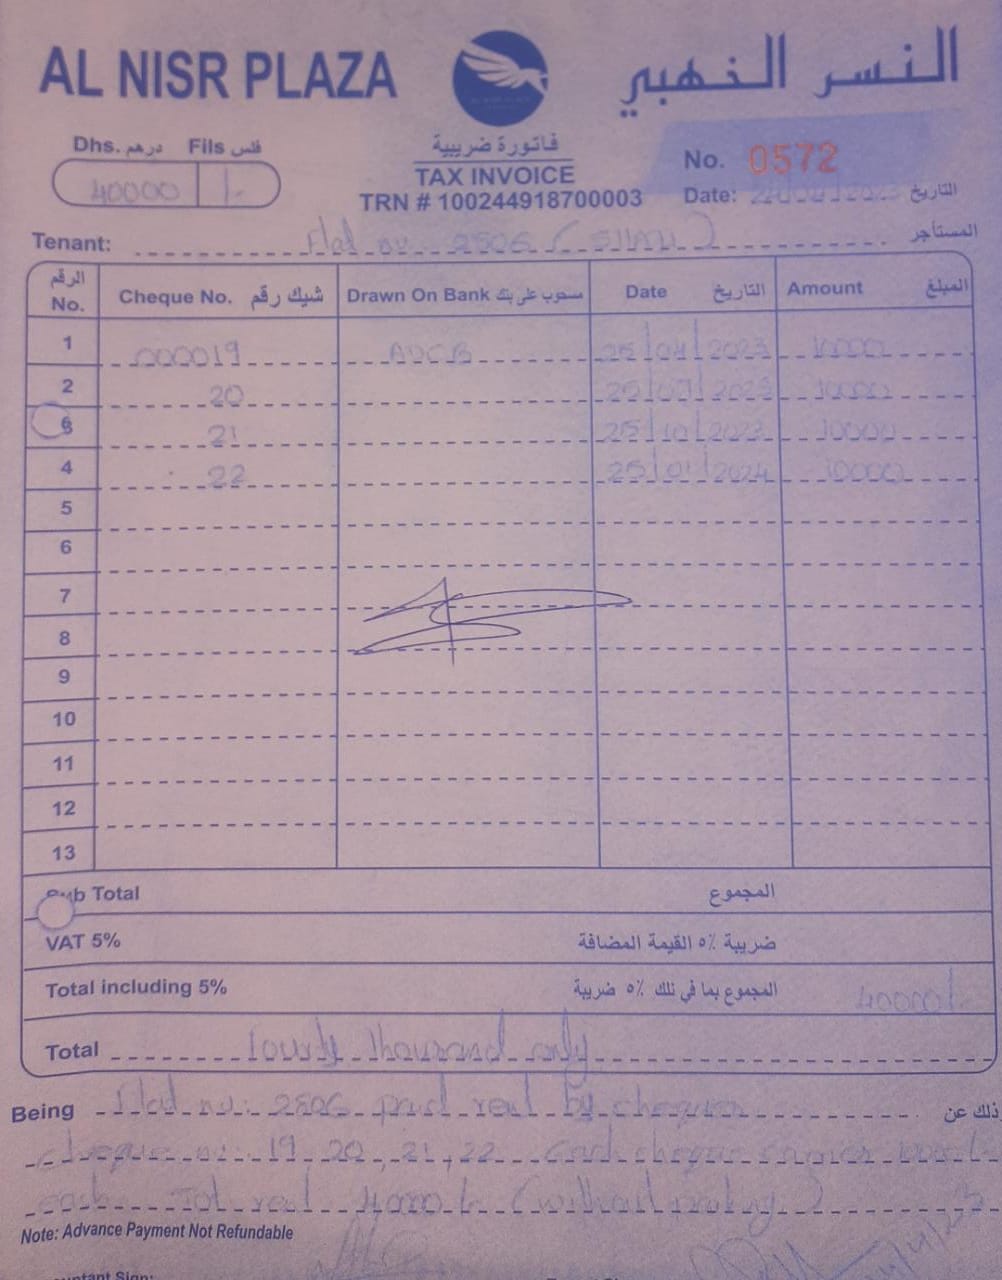 AL NISR PLAZA
النسر الذهبي
Dhs. درهم Fils فلس
40000 /-
فاتورة ضريبية
TAX INVOICE
TRN # 100244918700003
No. 0572
Date: التاريخ
Tenant: Flat no: 2506 المستأجر
الرقم No. Cheque No. شيك رقم Drawn On Bank مسحوب على بنك Date التاريخ Amount المبلغ
1 000019 ADCB 25/04/2023 10000
2 20 25/07/2023 10000
3 21 25/10/2023 10000
4 22 25/01/2024 10000
5
6
7
8
9
10
11
12
13
Sub Total المجموع
VAT 5% ضريبة ٥٪ القيمة المضافة
Total including 5% المجموع بما في ذلك ٥٪ ضريبة 40000/-
Total fourty thousand only
Being Flat no: 2506 paid rent by cheques وذلك عن
cheque no: 19, 20, 21, 22 each cheque
rent
Note: Advance Payment Not Refundable